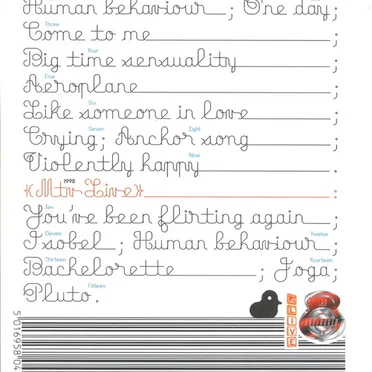 Human behaviour ; One day ;
Three
Come to me ;
Four
Big time sensuality ;
Five
Aeroplane ;
Six
Like someone in love ;
Seven Eight
Crying ; Anchor song ;
Nine
Violently happy .
1998
«Mtv Live» :
Ten
You've been flirting again ;
Eleven Twelve
Isobel ; Human behaviour ;
Thirteen Fourteen
Bachelorette ; Joga ;
Fifteen
Pluto .
LIVE
5 016958 04